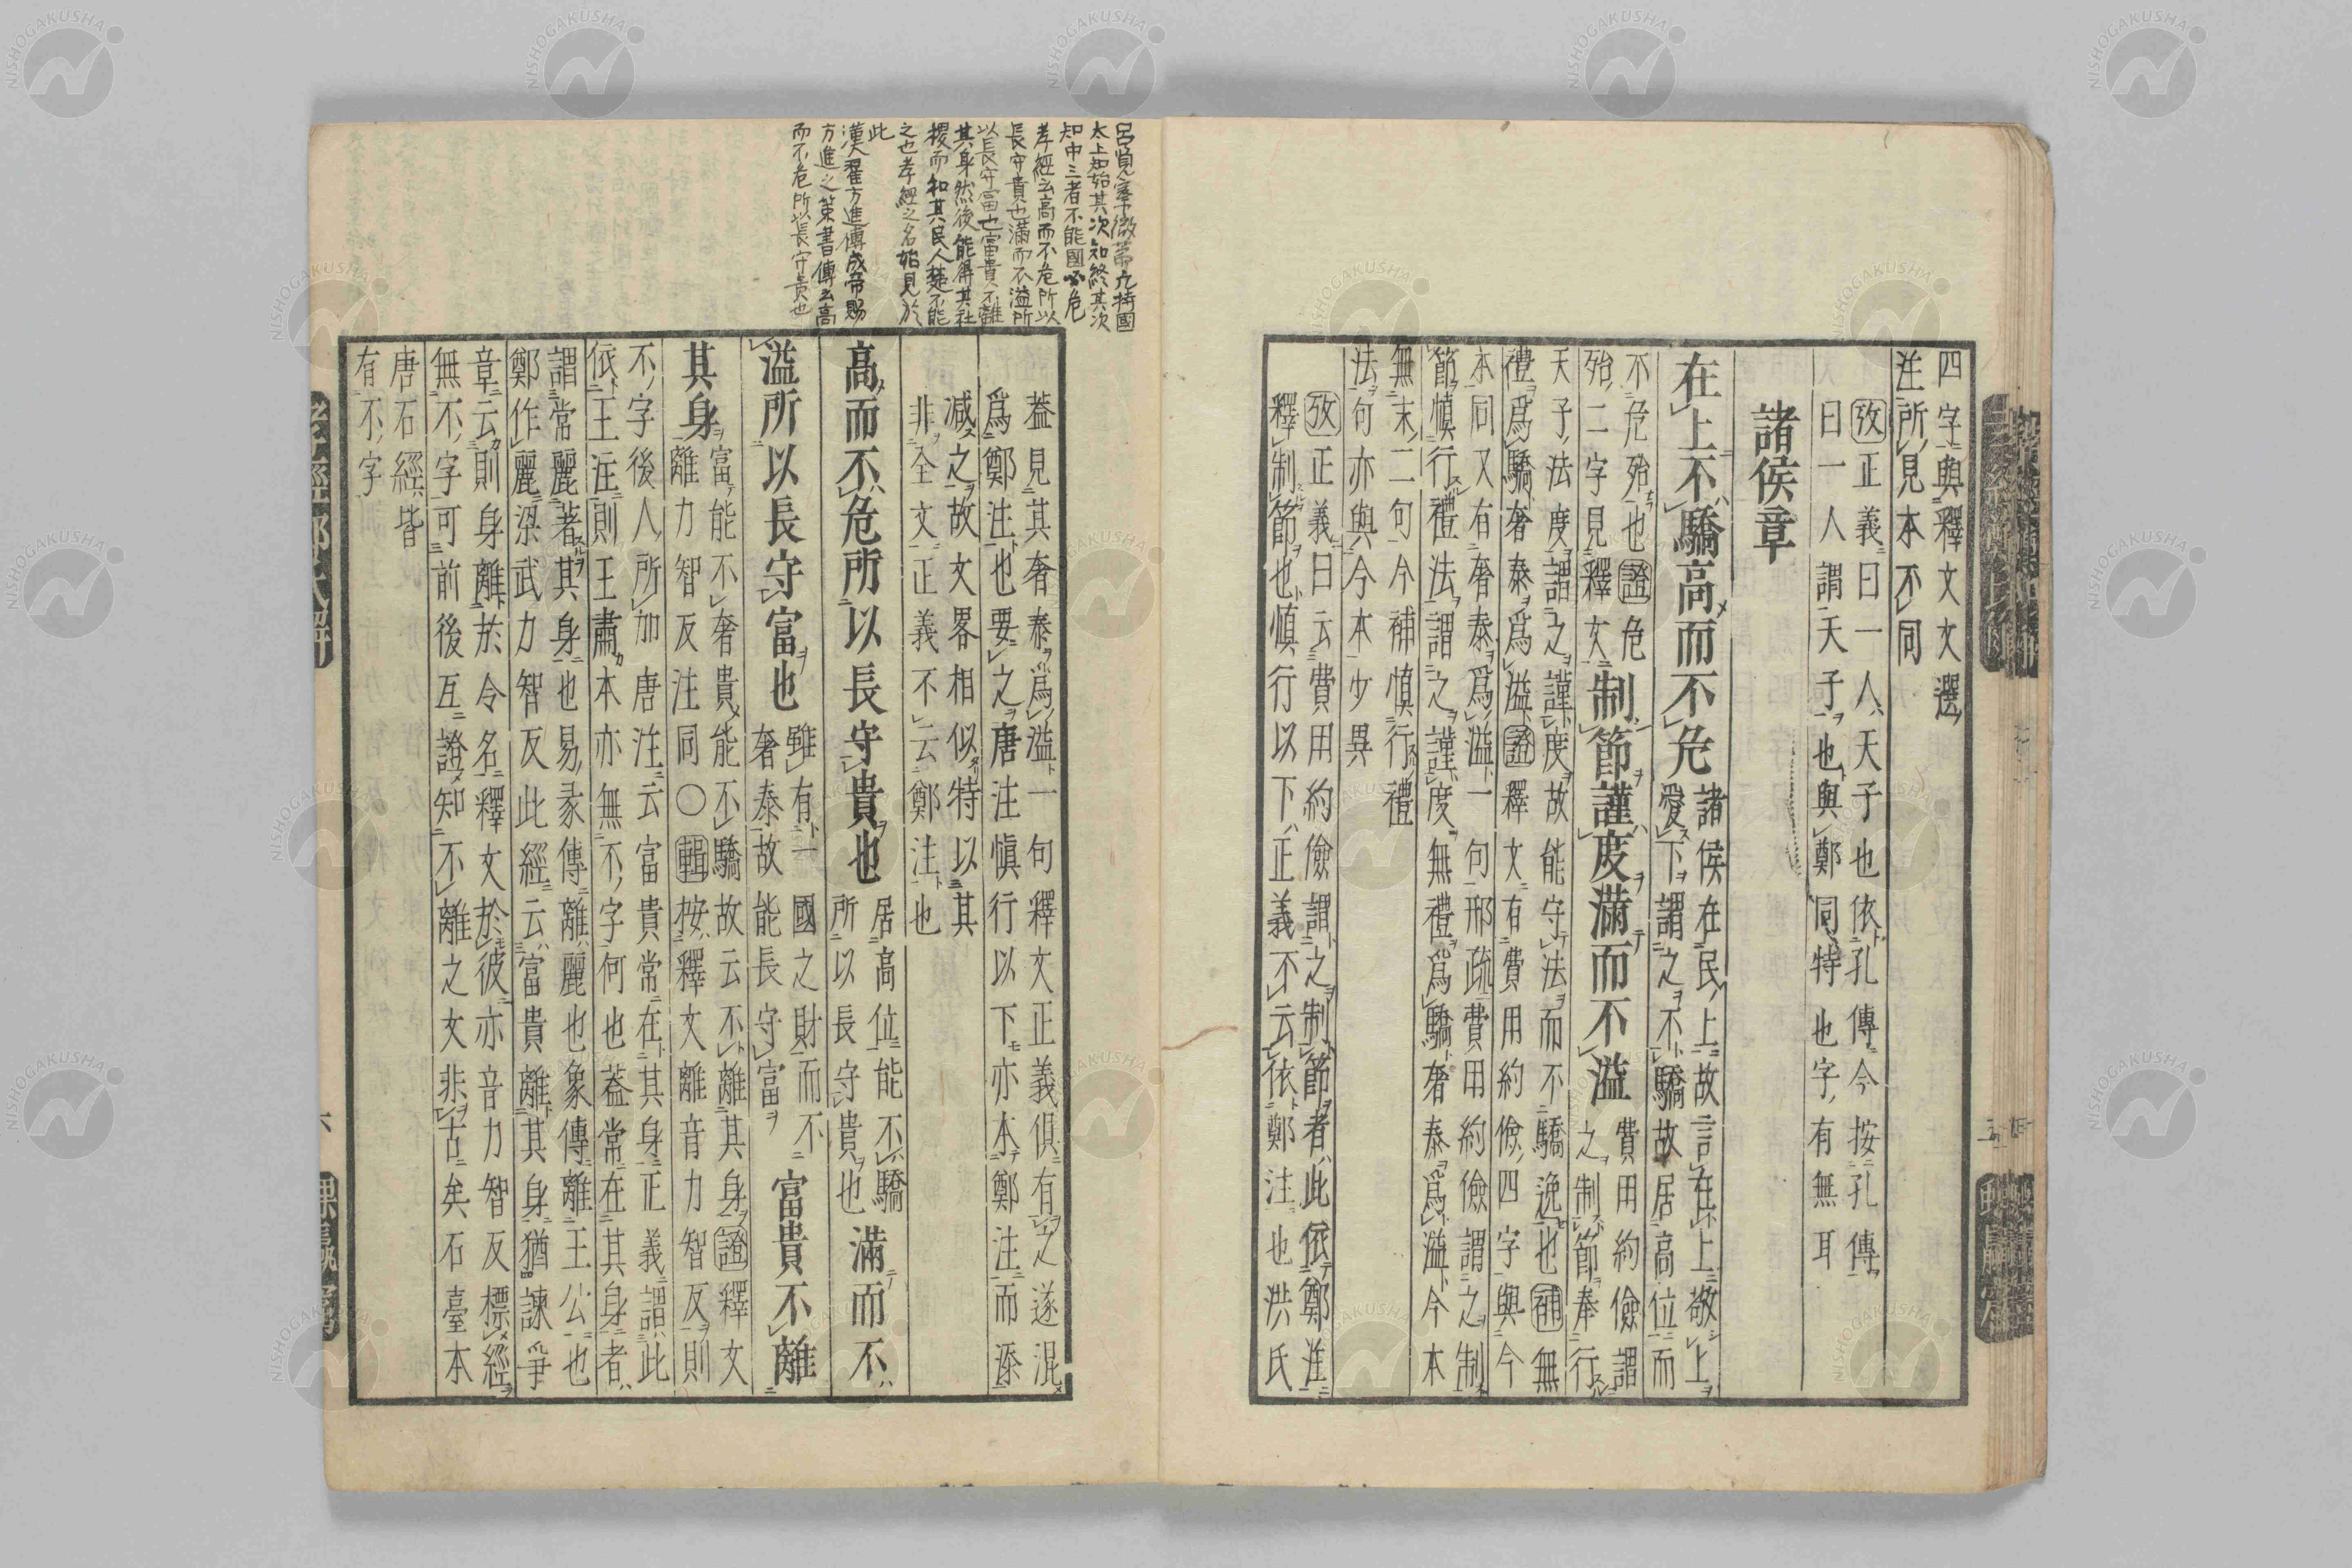 四字與釋文文選
注所見本不同
攷正義曰一人天子也依孔傳今按孔傳
曰一人謂天子也與鄭同特也字有無耳
諸侯章
在上不驕高而不危
諸侯在民上故言在上敬上
愛下謂之不驕故居高位而
不危殆也證危
殆二字見釋文
制節謹度滿而不溢
費用約儉謂
之制節奉行
天子法度謂之謹度故能守法而不驕逸也補無
禮爲驕奢泰爲溢證釋文有費用約儉四字與今
本同又有奢泰爲溢一句邢疏費用約儉謂之制
節慎行禮法謂之謹度無禮爲驕奢泰爲溢今本
無末二句今補慎行禮
法句亦與今本少異
攷正義曰云費用約儉謂之制節者此依鄭注
釋制節也慎行以下正義不云依鄭注也洪氏
蓋見其奢泰爲溢一句釋文正義俱有之遂混
爲鄭注也要之唐注慎行以下亦本鄭注而添
減之故文畧相似特以其
非全文正義不云鄭注也
高而不危所以長守貴也
居高位能不驕
所以長守貴也
滿而不
溢所以長守富也
雖有一國之財而不
奢泰故能長守富
富貴不離
其身
富能不奢貴能不驕故云不離其身證釋文
離力智反注同〇輯按釋文離音力智反則
不字後人所加唐注云富貴常在其身正義謂此
依王注則王肅本亦無不字何也蓋常在其身者
謂常麗著其身也易彖傳離麗也象傳離王公也
鄭作麗梁武力智反此經云富貴離其身猶諫爭
章云則身離於令名釋文於彼亦音力智反標經
無不字可前後互證知不離之文非古矣石臺本
唐石經皆
有不字
呂覽審微第九持國
太上知始其次知終其次
知中三者不能國必危
孝經云高而不危所以
長守貴也滿而不溢所
以長守富也富貴不離
其身然後能得其社
稷而和其民人楚不能
之也孝經之名始見於
此
漢翟方進傳成帝賜
方進之策書傳云高
而不危所以長守貴也
六